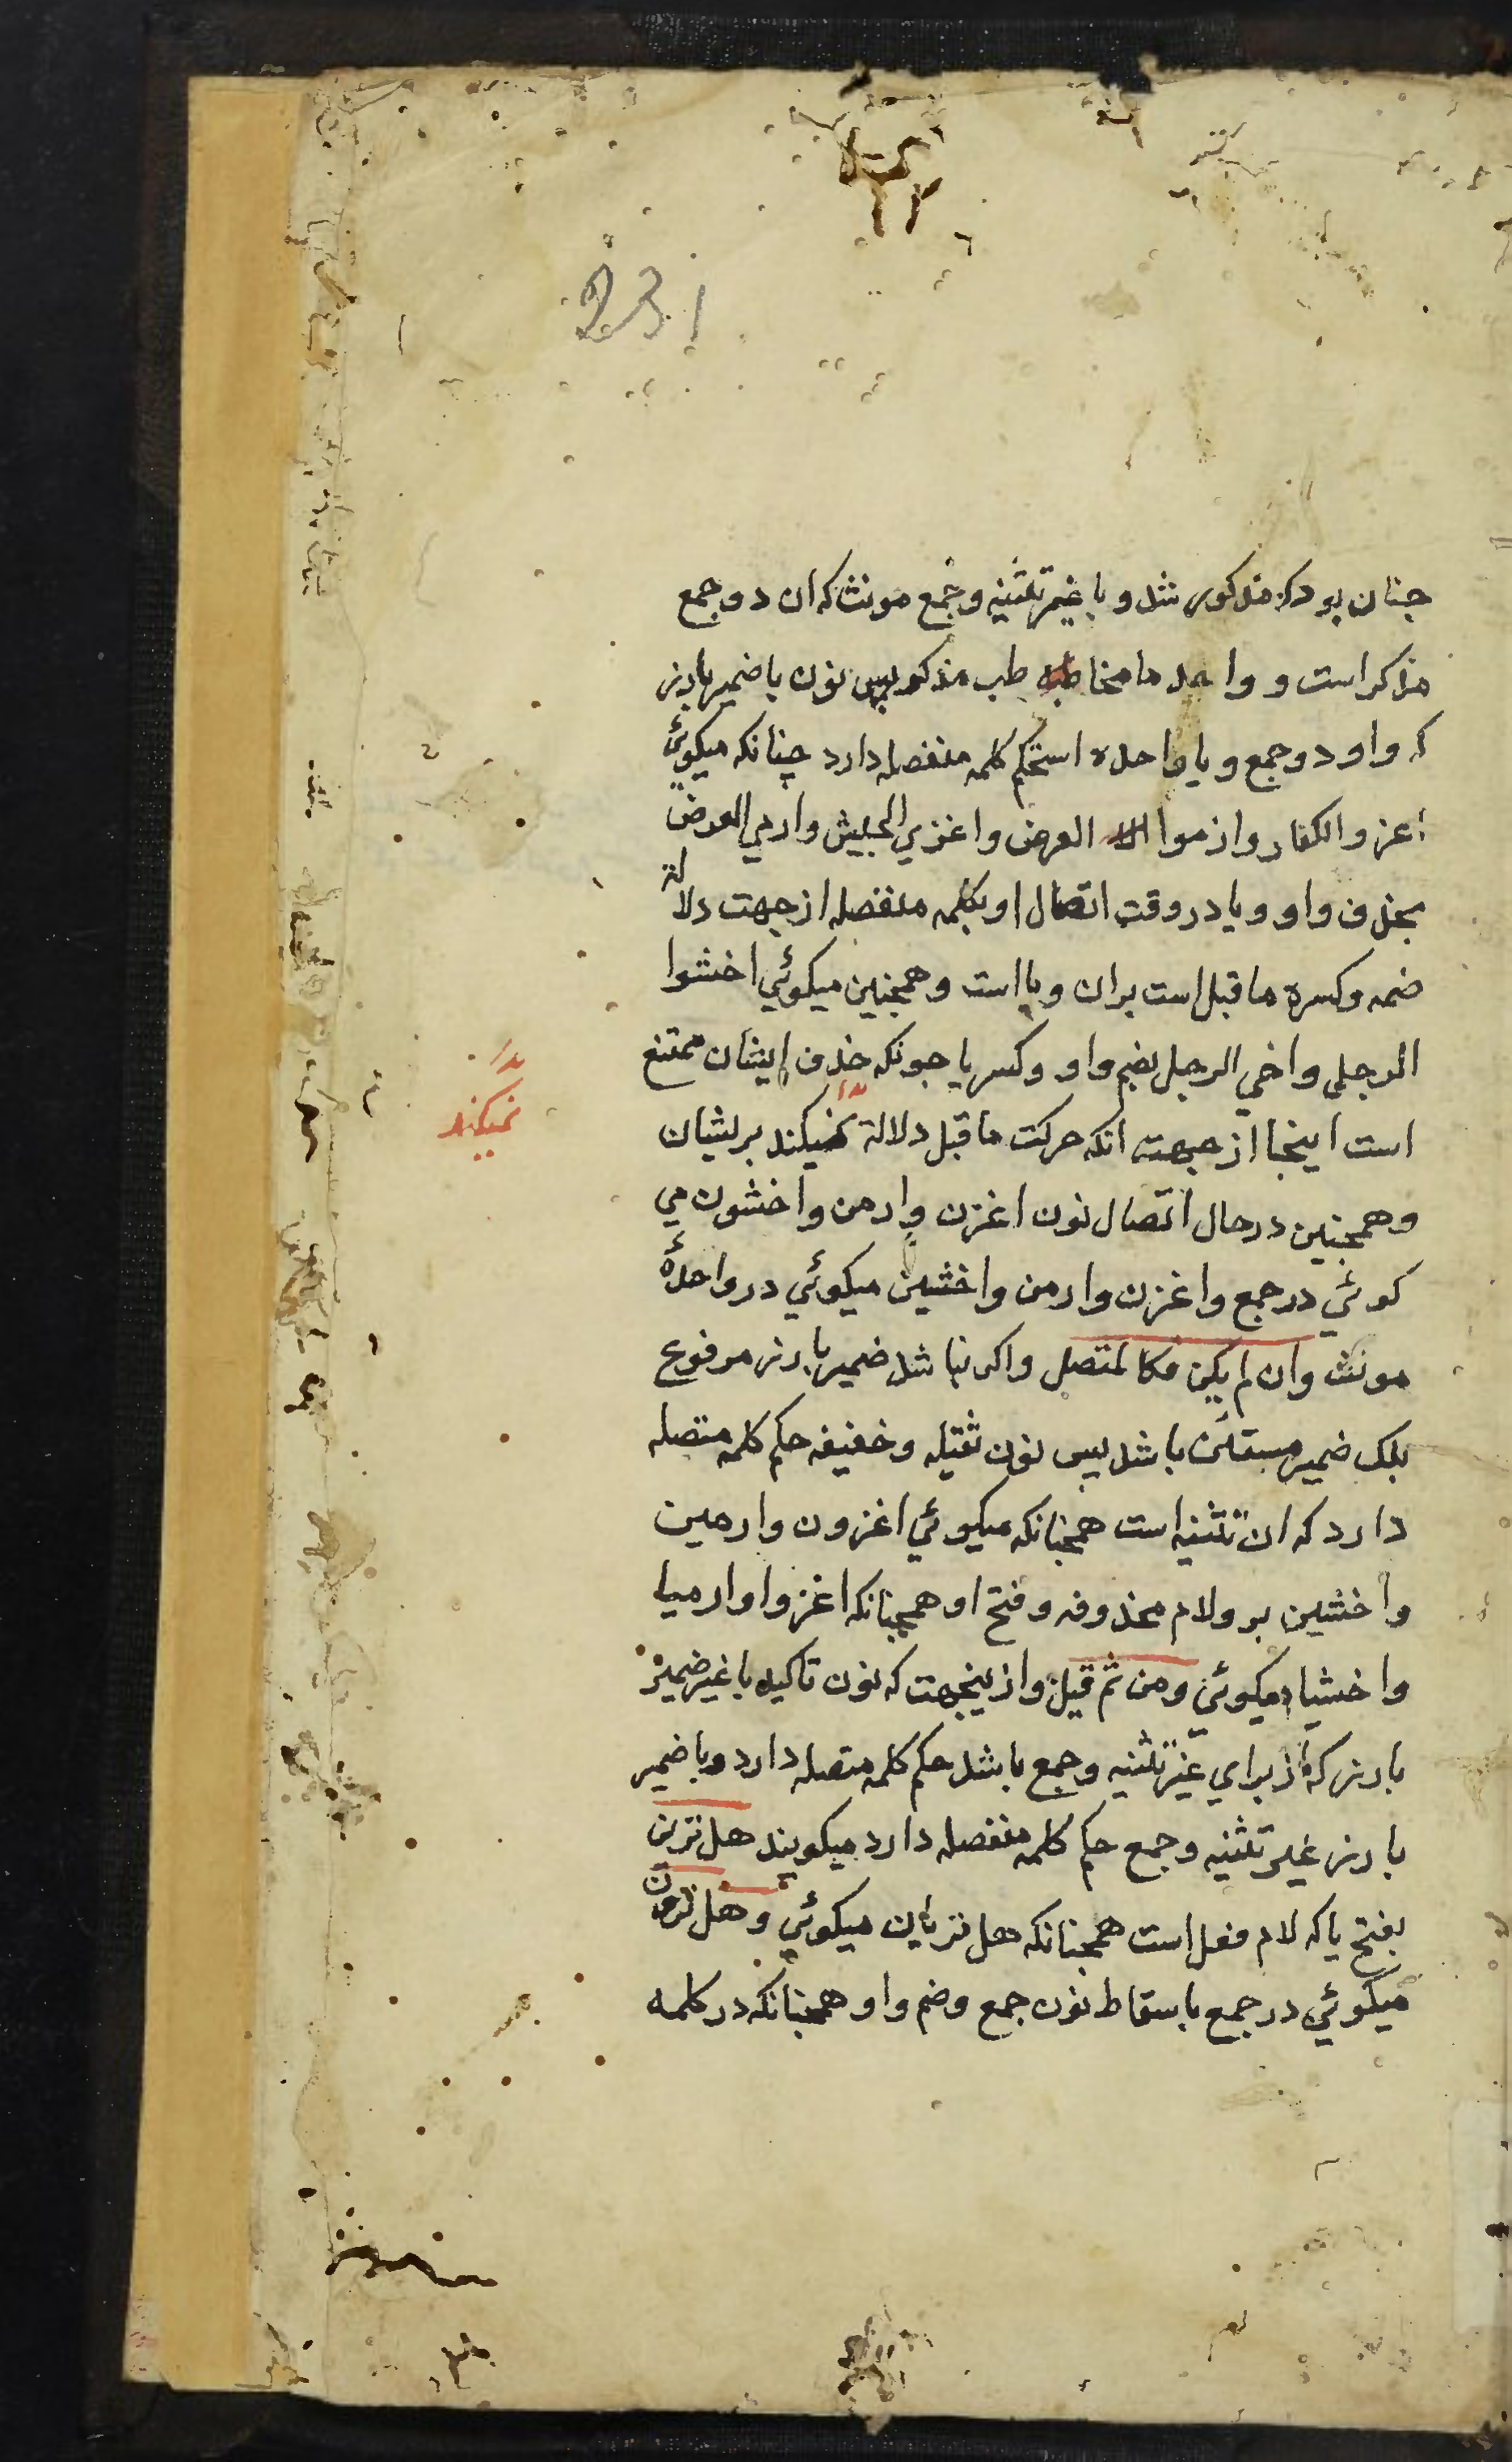 231
جنان بود که مذکور شد و با غیر تثنیه و جمع مونث که ان دو جمع
مذکر است و واحد ما مخاطبه طب مذکور پس نون با ضمیر بارز
که واو دو جمع و یا واحده است حکم کلمه منفصله دارد چنانکه میکوئي
اعزو الکفار وازموا العرض واغزي الجیش وارمي العرض
بحذف واو و یا در وقت اتصال او بکلمه منفصله از جهت دلالة
ضمه و کسره ما قبل است بران و یا است و همجنین میکوئي اخشوا
الرجلی واخي الرجل بضم واو و کسر یا جونکه حذف ایشان ممتنع
است اینجا از جهت انکه حرکت ما قبل دلالة نمیکند بریشان
نمیکند
و همجنین در حال اتصال نون اغزن وارمن واخشون مي
کوئي در جمع واغزن وارمن واخشین میکوئي در واحدهٔ
مونث وان لم یکن فکالمتصل واکر نباشد ضمیر بارز مرفوع
بلک ضمیر مستکن باشد پس نون ثقیله و خفیفه حکم کلمه متصله
دارد که ان تثنیه است همجنانکه میکوئي اغزون وارمین
واخشین برو لام محذوفه و فتح او همجنانکه اغزوا وارمیا
واخشیا میکوئي ومن ثم قیل وازینجهت که نون تاکید با غیر ضمیر
بارز که از براي غیر تثنیه و جمع باشد حکم کلمه متصله دارد و با ضمیر
بارز غیر تثنیه و جمع حکم کلمه منفصله دارد میکویند هل ترین
بفتح یا که لام فعل است همجنانکه هل ترئاین میکوئي و هل ترون
میکوئي در جمع باسقاط نون جمع و ضم واو همجنانکه در کلمه